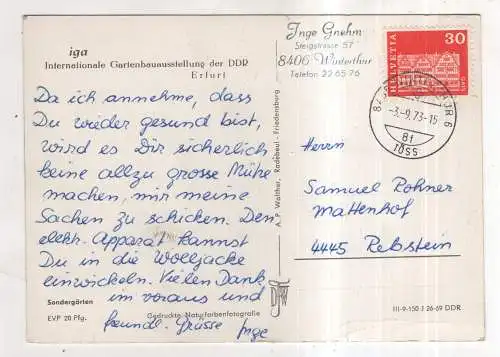 iga
Internationale Gartenbauausstellung der DDR
Erfurt
Da ich annehme, dass
Du wieder gesund bist,
wird es Dir sicherlich
keine allzu grosse Mühe
machen, mir meine
Sachen zu schicken. Den
elektr. Apparat kannst
Du in die Wolljacke
einwickeln. Vielen Dank
im voraus und
freundl. Grüsse Inge
Sondergärten
EVP 20 Pfg.
Gedruckte Naturfarbenfotografie
A. P. Walther, Radebeul - Friedensburg
Inge Gnehm
Steigstrasse 57
8406 Winterthur
Telefon 22 65 76
HELVETIA
30
GAIS
-3.-9.73-15
8f
TÖSS
Herrn
Samuel Rohner
Mattenhof
4445 Rebstein
III-9-150 J 26-69 DDR